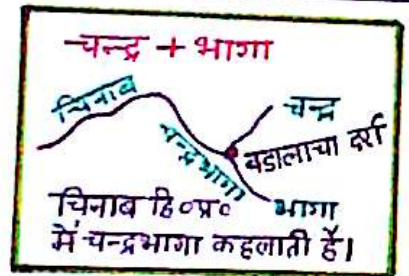 चन्द्र + भागा
चिनाब
चन्द्र
चन्द्रभागा
बडालाचा दर्रा
भागा
चिनाब हि०प्र०
में चन्द्रभागा कहलाती है।